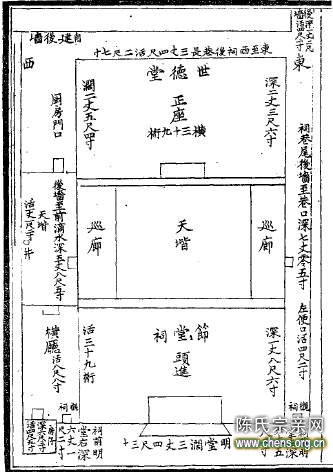 自建後墻
東至西祠後巷長三丈四尺活二尺七寸
東
西
世德堂
正座
橫三十九桁
深二丈三尺六寸
濶二丈五尺四寸
廚房門口
祠巷尾後墻至巷口深七丈零五寸
後墻至前滴水深五丈八尺五寸
天堦
巡廊
天堦
巡廊
左便口活四尺二寸
節堂祠
頭進
深一丈八尺六寸
活三十九桁
橫廳活八尺八寸
明堂濶三丈四尺三寸
祠前明堂
陈氏宗亲网
www.chens.org.cn